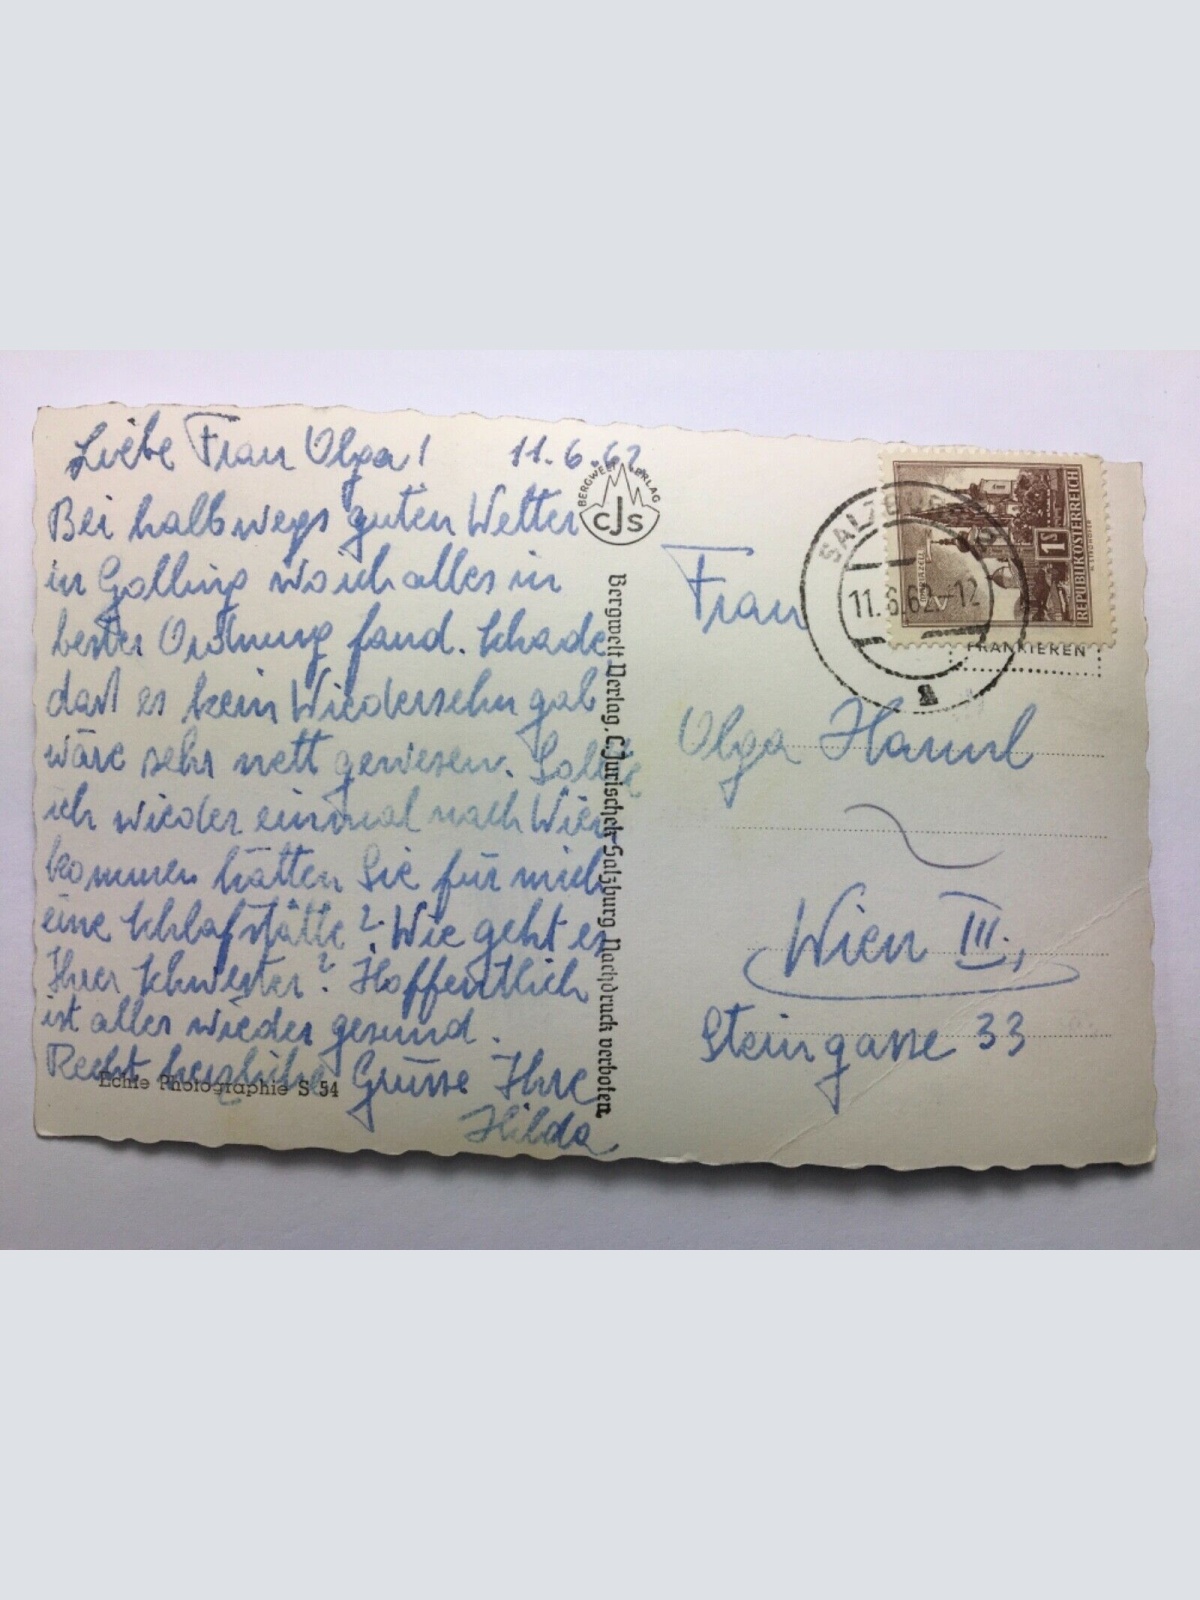 Liebe Frau Olga! 11.6.62
Bei halbwegs guten Wetter
in Golling wo ich alles in
bester Ordnung fand. Schade
daß es kein Wiedersehn gab
wäre sehr nett gewesen. Sollte
ich wieder einmal nach Wien
kommen hätten Sie für mich
eine Schlafstätte? Wie geht es
Ihrer Schwester? Hoffentlich
ist alles wieder gesund.
Recht herzliche Grüsse Ihre
Hilda
Echte Photographie S 54
BERGWELT VERLAG
CJS
Bergwelt Verlag, C. Jurischek Salzburg Nachdruck verboten.
SALZBURG 2
11.6.62-12
a
1S
REPUBLIK ÖSTERREICH
MARIAZELL
FRANKIEREN
Frau
Olga
Wien III.,
Steingasse 33